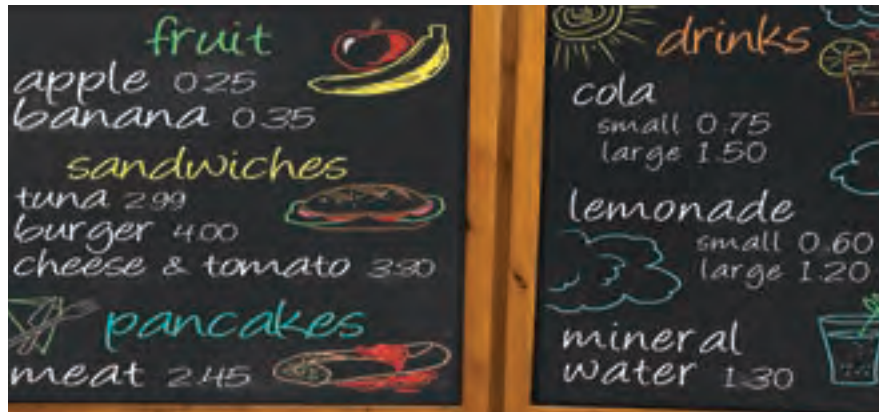 fruit
apple 0.25
banana 0.35
sandwiches
tuna 2.99
burger 4.00
cheese & tomato 3.30
pancakes
meat 2.45
drinks
cola
small 0.75
large 1.50
lemonade
small 0.60
large 1.20
mineral
water 1.30